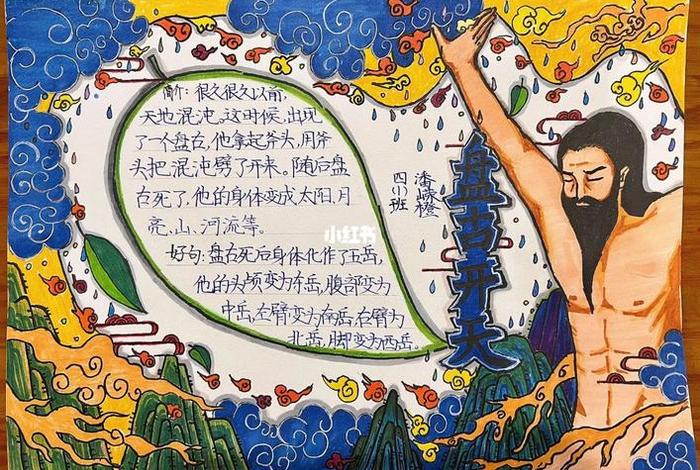 简介:很久很久以前,
天地混沌。这时候,出现
了一个盘古,他拿起斧头,用斧
头把混沌劈了开来。随后盘
古死了,他的身体变成太阳、月
亮、山、河流等。
好句:盘古死后身体化作了五岳,
他的头颅变为东岳,腹部变为
中岳,左臂变为南岳,右臂为
北岳,脚变为西岳。
小红书
四(1)班
潘 橙
盘古开天